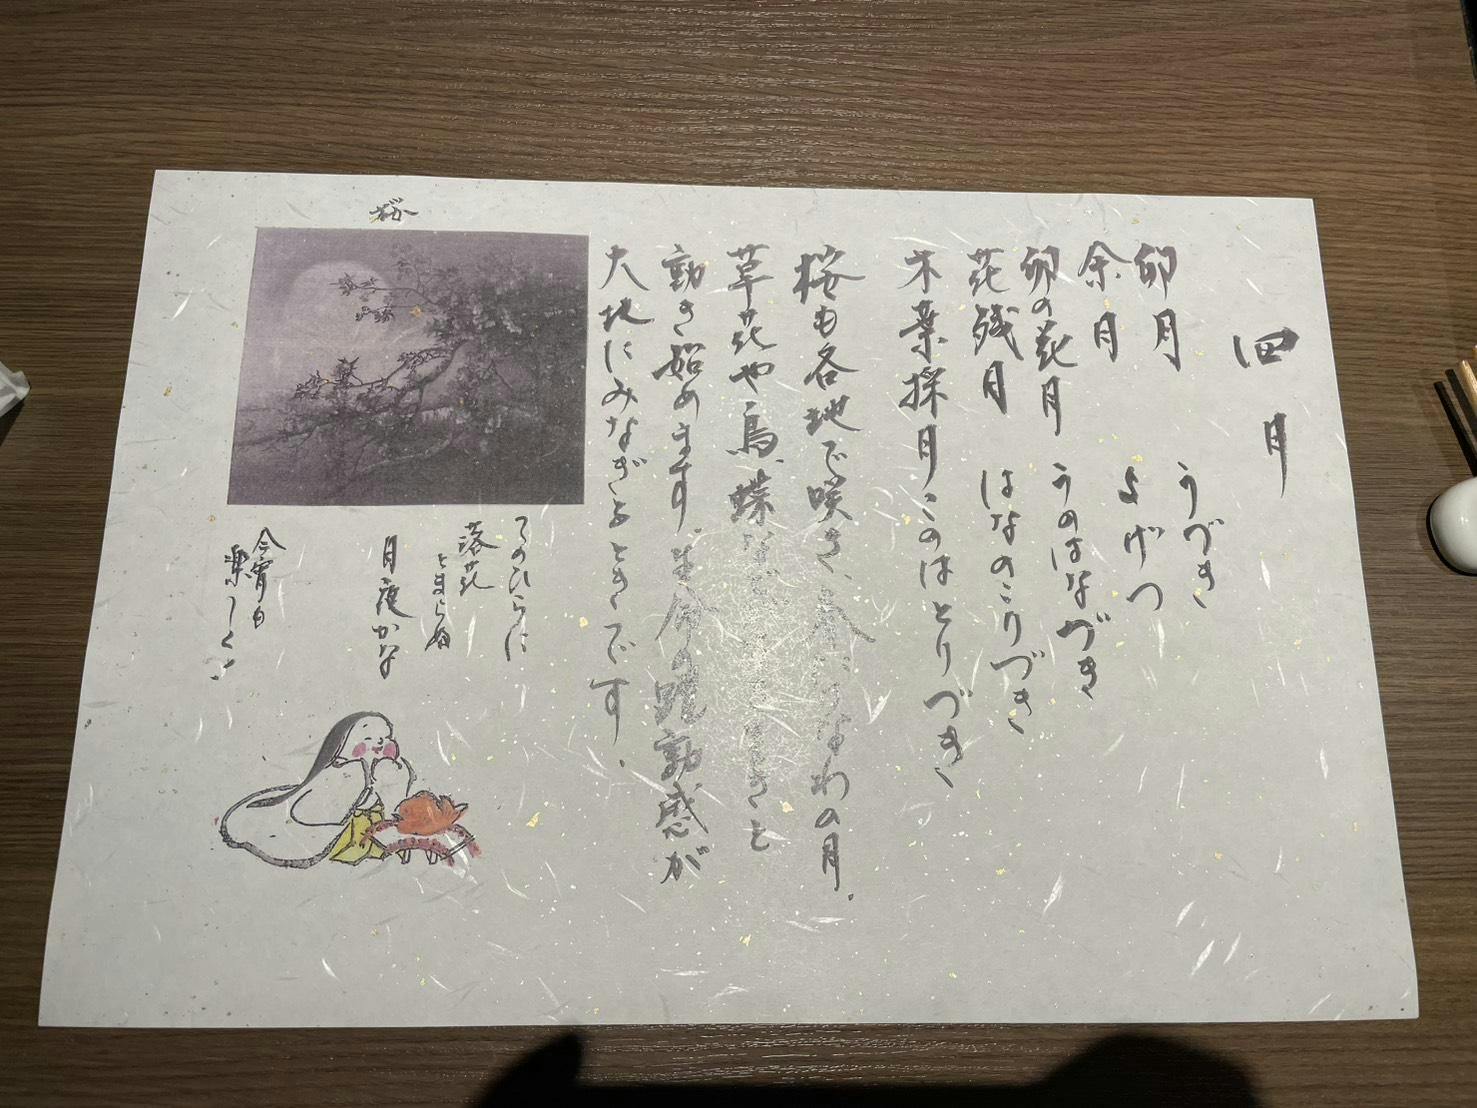 四月
卯月 うづき
余月 よげつ
卯の花月 うのはなづき
花残月 はなのこりづき
木葉採月 このはとりづき
桜も各地で咲き、春たけなわの月.
草花や鳥、蝶など
動き始めます。生命の躍動感が
大地にみなぎるときです.
桜
てのひらに
落花
とまらぬ
月夜かな
今宵も
楽しく